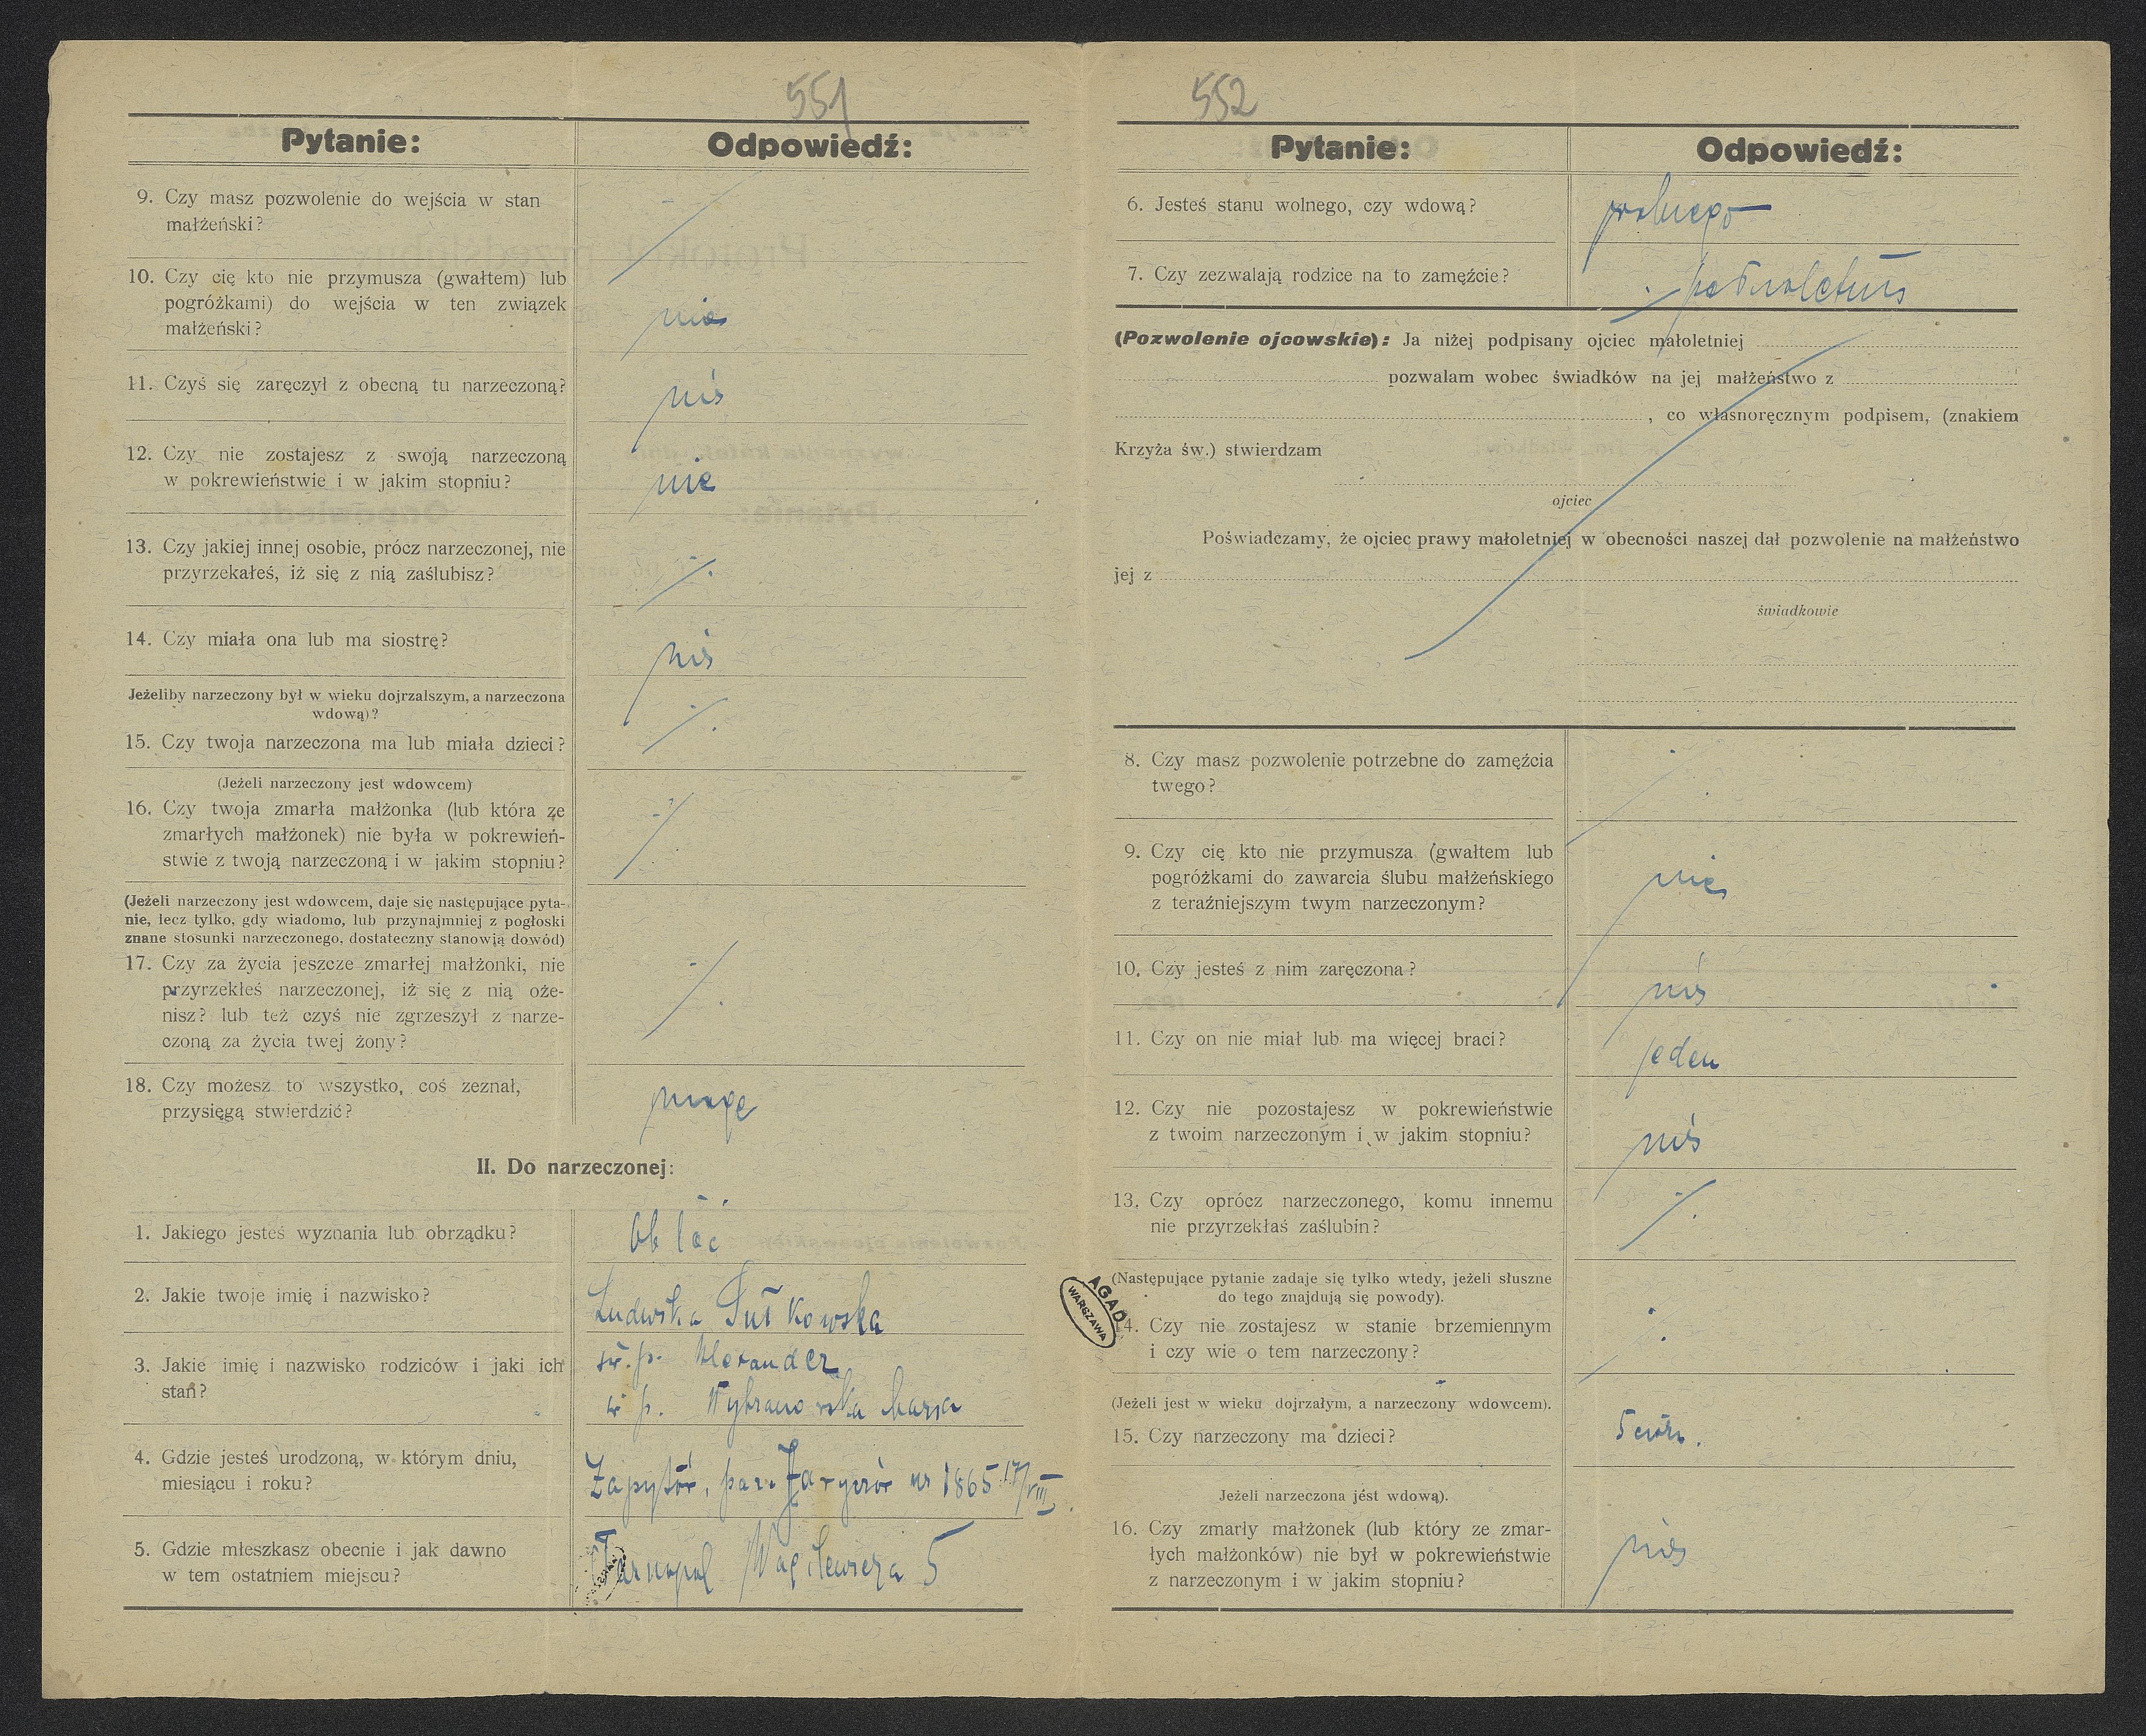 551
Pytanie:
Odpowiedź:
9. Czy masz pozwolenie do wejścia w stan
małżeński?
10. Czy cię kto nie przymusza (gwałtem) lub
pogróżkami) do wejścia w ten związek
małżeński?
nie
11. Czyś się zaręczył z obecną tu narzeczoną?
nie
12. Czy nie zostajesz z swoją narzeczoną
w pokrewieństwie i w jakim stopniu?
nie
13. Czy jakiej innej osobie, prócz narzeczonej, nie
przyrzekałeś, iż się z nią zaślubisz?
14. Czy miała ona lub ma siostrę?
nie
Jeżeliby narzeczony był w wieku dojrzalszym, a narzeczona
wdową)?
15. Czy twoja narzeczona ma lub miała dzieci?
(Jeżeli narzeczony jest wdowcem)
16. Czy twoja zmarła małżonka (lub która ze
zmarłych małżonek) nie była w pokrewień-
stwie z twoją narzeczoną i w jakim stopniu?
(Jeżeli narzeczony jest wdowcem, daje się następujące pyta-
nie, lecz tylko, gdy wiadomo, lub przynajmniej z pogłoski
znane stosunki narzeczonego, dostateczny stanowią dowód)
17. Czy za życia jeszcze zmarłej małżonki, nie
przyrzekłeś narzeczonej, iż się z nią oże-
nisz? lub też czyś nie zgrzeszył z narze-
czoną za życia twej żony?
18. Czy możesz to wszystko, coś zeznał,
przysięgą stwierdzić?
mogę
II. Do narzeczonej:
1. Jakiego jesteś wyznania lub obrządku?
ob łać
2. Jakie twoje imię i nazwisko?
Ludwika Sutkowska
3. Jakie imię i nazwisko rodziców i jaki ich
stan?
św. p. Alexander
św p. Wybranowska Marja
4. Gdzie jesteś urodzoną, w którym dniu,
miesiącu i roku?
Zapytów, par. Jaryczów ur 1865 17/VIII
5. Gdzie mieszkasz obecnie i jak dawno
w tem ostatniem miejscu?
Tarnopol Wagilewicza 5
552
Pytanie:
Odpowiedź:
6. Jesteś stanu wolnego, czy wdową?
wolnego
7. Czy zezwalają rodzice na to zamęźcie?
(Pozwolenie ojcowskie): Ja niżej podpisany ojciec małoletniej
pozwalam wobec świadków na jej małżeństwo z
, co własnoręcznym podpisem, (znakiem
Krzyża św.) stwierdzam
ojciec
Poświadczamy, że ojciec prawy małoletniej w obecności naszej dał pozwolenie na małżeństwo
jej z
świadkowie
8. Czy masz pozwolenie potrzebne do zamęźcia
twego?
9. Czy cię kto nie przymusza (gwałtem lub
pogróżkami do zawarcia ślubu małżeńskiego
z teraźniejszym twym narzeczonym?
nie
10. Czy jesteś z nim zaręczona?
nie
11. Czy on nie miał lub ma więcej braci?
jeden
12. Czy nie pozostajesz w pokrewieństwie
z twoim narzeczonym i w jakim stopniu?
nie
13. Czy oprócz narzeczonego, komu innemu
nie przyrzekłaś zaślubin?
(Następujące pytanie zadaje się tylko wtedy, jeżeli słuszne
do tego znajdują się powody).
AGAD
WARSZAWA
14. Czy nie zostajesz w stanie brzemiennym
i czy wie o tem narzeczony?
(Jeżeli jest w wieku dojrzałym, a narzeczony wdowcem).
15. Czy narzeczony ma dzieci?
5
Jeżeli narzeczona jest wdową).
16. Czy zmarły małżonek (lub który ze zmar-
łych małżonków) nie był w pokrewieństwie
z narzeczonym i w jakim stopniu?
nie